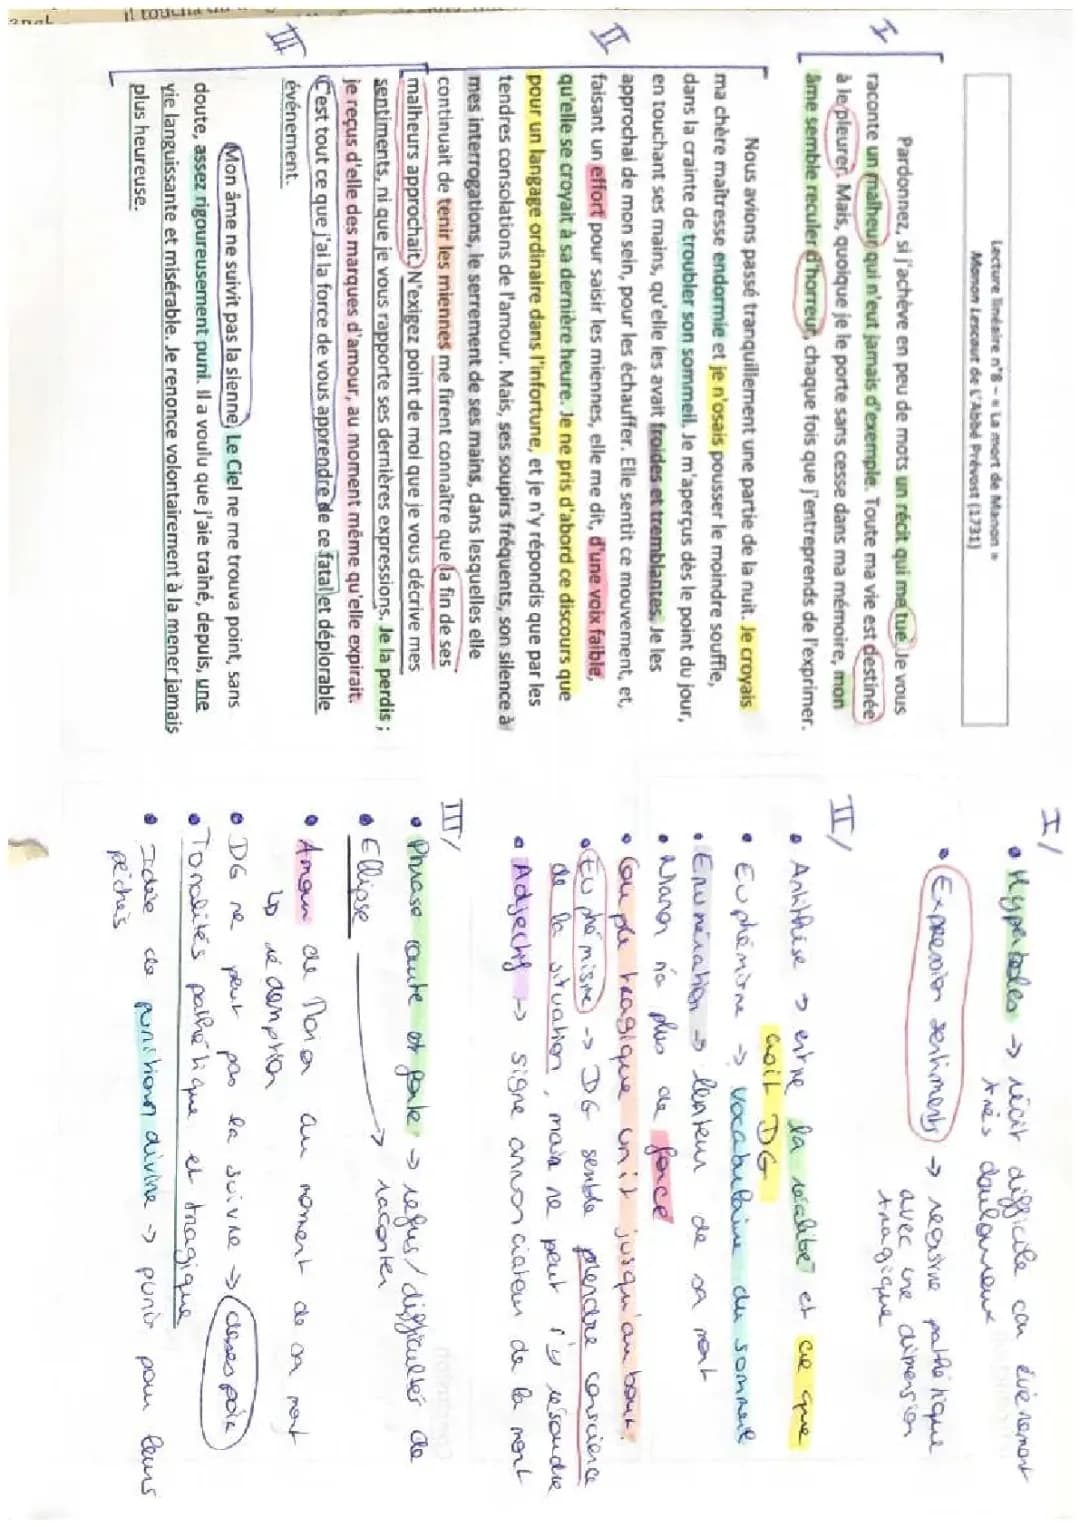 Lecture linéaire n°8 – « La mort de Manon »
Manon Lescaut de L'Abbé Prévost (1731)
I
Pardonnez, si j'achève en peu de mots un récit qui me tue. Je vous
raconte un malheur qui n'eut jamais d'exemple. Toute ma vie est destinée
à le pleurer. Mais, quoique je le porte sans cesse dans ma mémoire, mon
âme semble reculer d'horreur, chaque fois que j'entreprends de l'exprimer.
II
Nous avions passé tranquillement une partie de la nuit. Je croyais
ma chère maîtresse endormie et je n'osais pousser le moindre souffle,
dans la crainte de troubler son sommeil. Je m'aperçus dès le point du jour,
en touchant ses mains, qu'elle les avait froides et tremblantes. Je les
approchai de mon sein, pour les échauffer. Elle sentit ce mouvement, et,
faisant un effort pour saisir les miennes, elle me dit, d'une voix faible,
qu'elle se croyait à sa dernière heure. Je ne pris d'abord ce discours que
pour un langage ordinaire dans l'infortune, et je n'y répondis que par les
tendres consolations de l'amour. Mais, ses soupirs fréquents, son silence à
mes interrogations, le serrement de ses mains, dans lesquelles elle
continuait de tenir les miennes me firent connaître que la fin de ses
malheurs approchait. N'exigez point de moi que je vous décrive mes
sentiments, ni que je vous rapporte ses dernières expressions. Je la perdis ;
je reçus d'elle des marques d'amour, au moment même qu'elle expirait.
C'est tout ce que j'ai la force de vous apprendre de ce fatal et déplorable
événement.
III
Mon âme ne suivit pas la sienne. Le Ciel ne me trouva point, sans
doute, assez rigoureusement puni. Il a voulu que j'aie traîné, depuis, une
vie languissante et misérable. Je renonce volontairement à la mener jamais
plus heureuse.
I/
• Hyperboles -> récit difficile car évènement
très douloureux
• Expression sentiments -> registre pathétique
avec une dimension
tragique
II/
• Antithèse -> entre la réalité et ce que
croit DG
• Euphémisme -> vocabulaire du sommeil
• Enumération -> lenteur de sa mort
• Manon n'a plus de force
• Couple tragique unit jusqu'au bout.
• Euphémisme -> DG semble prendre conscience
de la situation, mais ne peut s'y résoudre
• Adjectifs -> signe annonciateur de la mort
III/
• Phrase courte et forte -> refus/difficultés de
• Ellipse -> raconter
• Amour de Manon au moment de sa mort
↳ rédemption
• DG ne peut pas la suivre -> désespoir
• Tonalités pathétique et tragique
• Idée de punition divine -> punir pour leurs
péchés